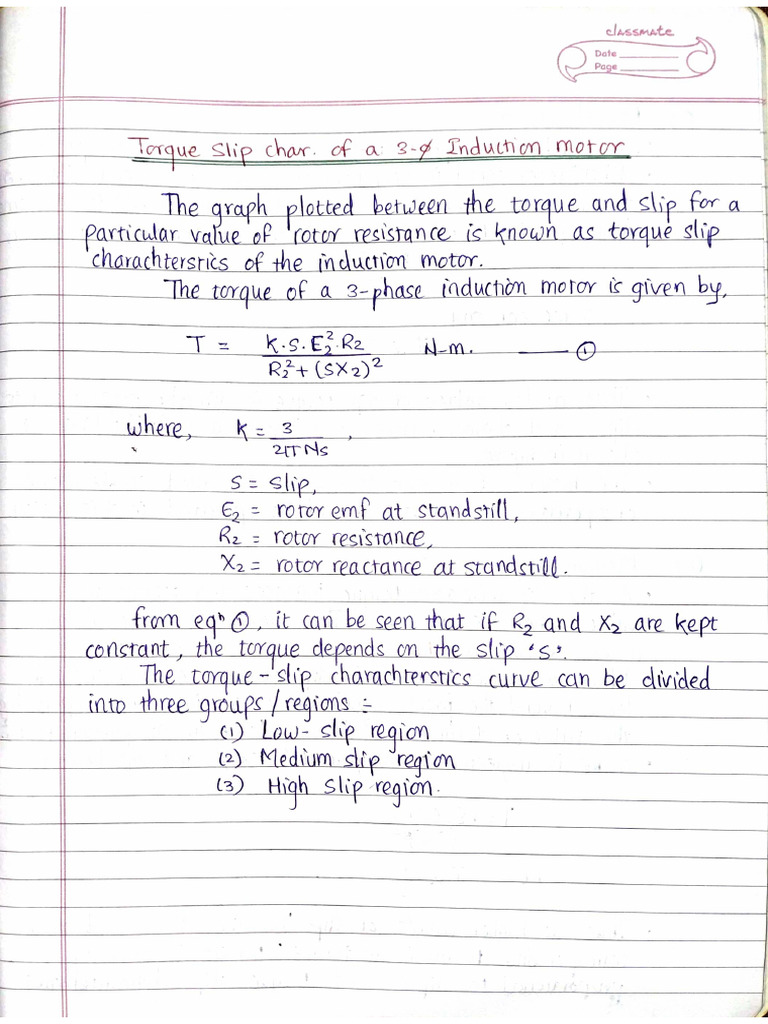 classmate
Date
Page
Torque slip char. of a 3-ϕ Induction motor
The graph plotted between the torque and slip for a
particular value of rotor resistance is known as torque slip
charachterstrics of the induction motor.
The torque of a 3-phase induction motor is given by,
T = K.S.E₂².R₂ / R₂² + (SX₂)² N-m. —— ①
where, K = 3 / 2πNs ,
S = slip,
E₂ = rotor emf at standstill,
R₂ = rotor resistance,
X₂ = rotor reactance at standstill.
from eqⁿ ①, it can be seen that if R₂ and X₂ are kept
constant, the torque depends on the slip 's'.
The torque-slip charachterstics curve can be divided
into three groups/regions :-
(1) Low-slip region
(2) Medium slip region
(3) High slip region.